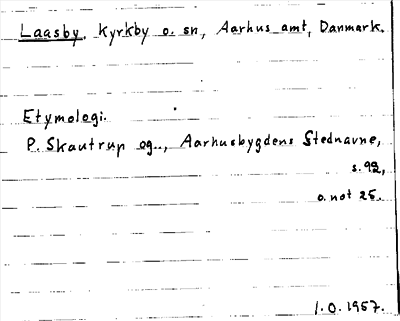 Laasby, Kyrkby o. sn, Aarhus amt, Danmark.
Etymologi.
P. Skautrup og.., Aarhusbygdens Stednavne,
s. 92,
o. not 25.
1.0. 1957.